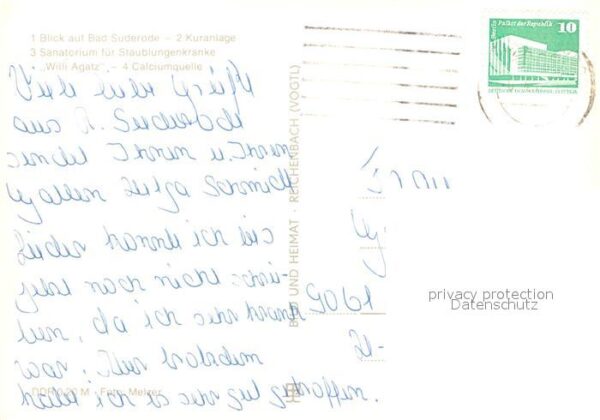 1 Blick auf Bad Suderode – 2 Kuranlage
3 Sanatorium für Staublungenkranke
„Willi Agatz" – 4 Calciumquelle
Viele liebe Grüße
aus B. Suderode
sendet Ihnen u. Ihrem
Gatten Helga Schmidt
Leider konnte ich bis
jetzt noch nicht schrei-
ben, da ich sehr krank
war. Aber trotzdem
habe ich es sehr gut getroffen.
DDR 0,20 M · Foto: Melzer
BILD UND HEIMAT · REICHENBACH (VOGTL)
Berlin Palast der Republik
10
DEUTSCHE DEMOKRATISCHE REPUBLIK
Frau
9061
privacy protection
Datenschutz